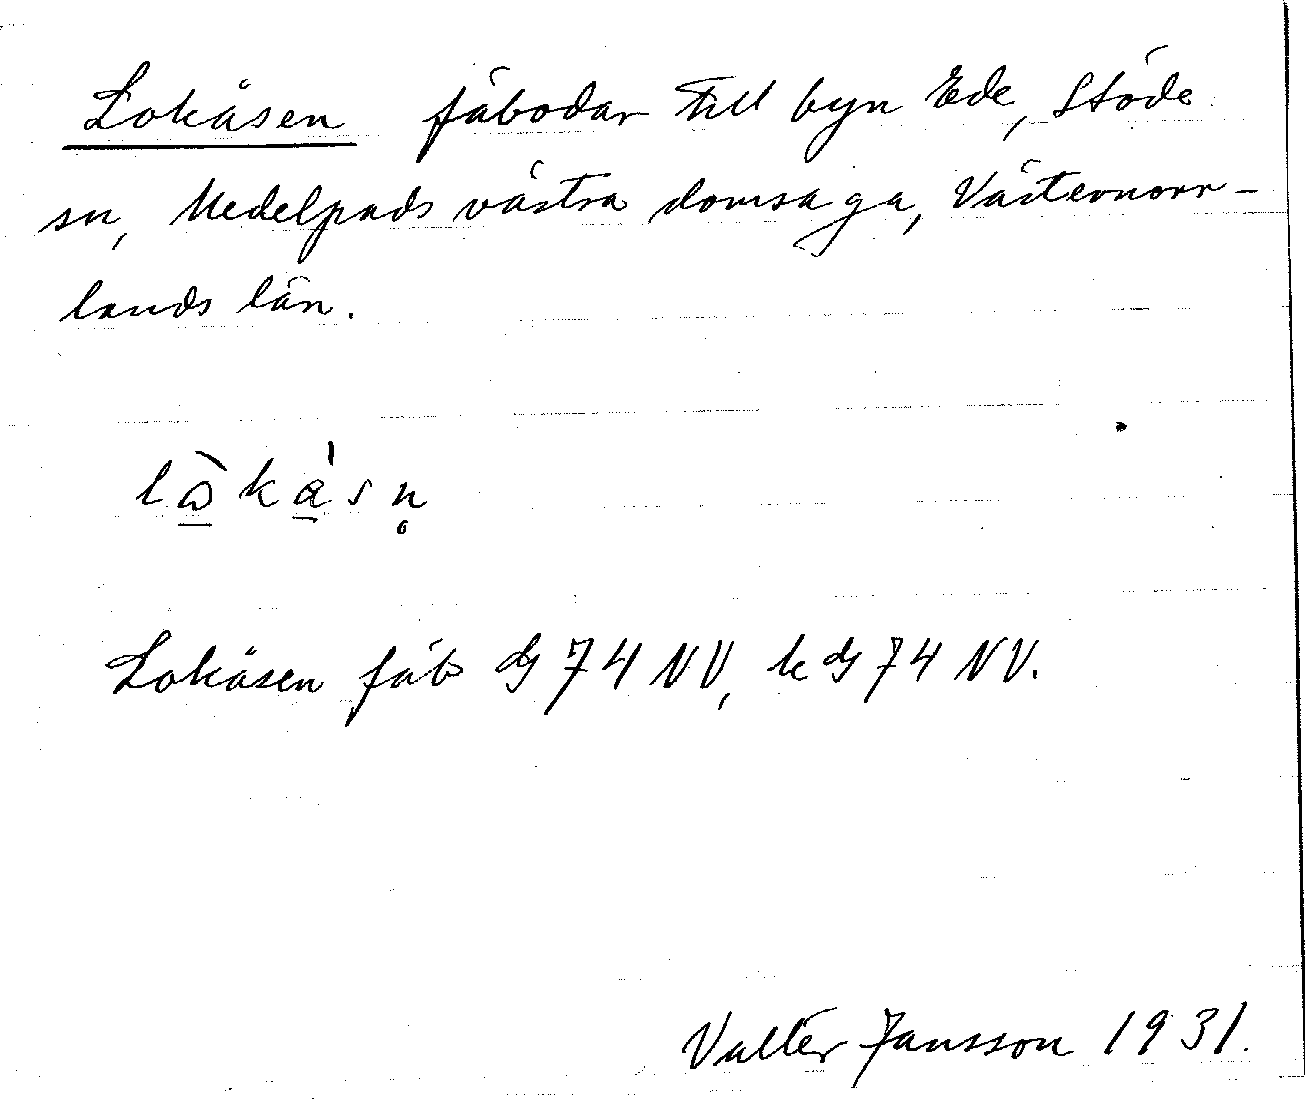 Lokåsen fäbodar till byn Ede, Stöde
sn, Medelpads västra domsaga, Västernorr-
lands län.
Lokåsen fäb dj 74 NV, k dj 74 NV.
Valter Jansson 1931.